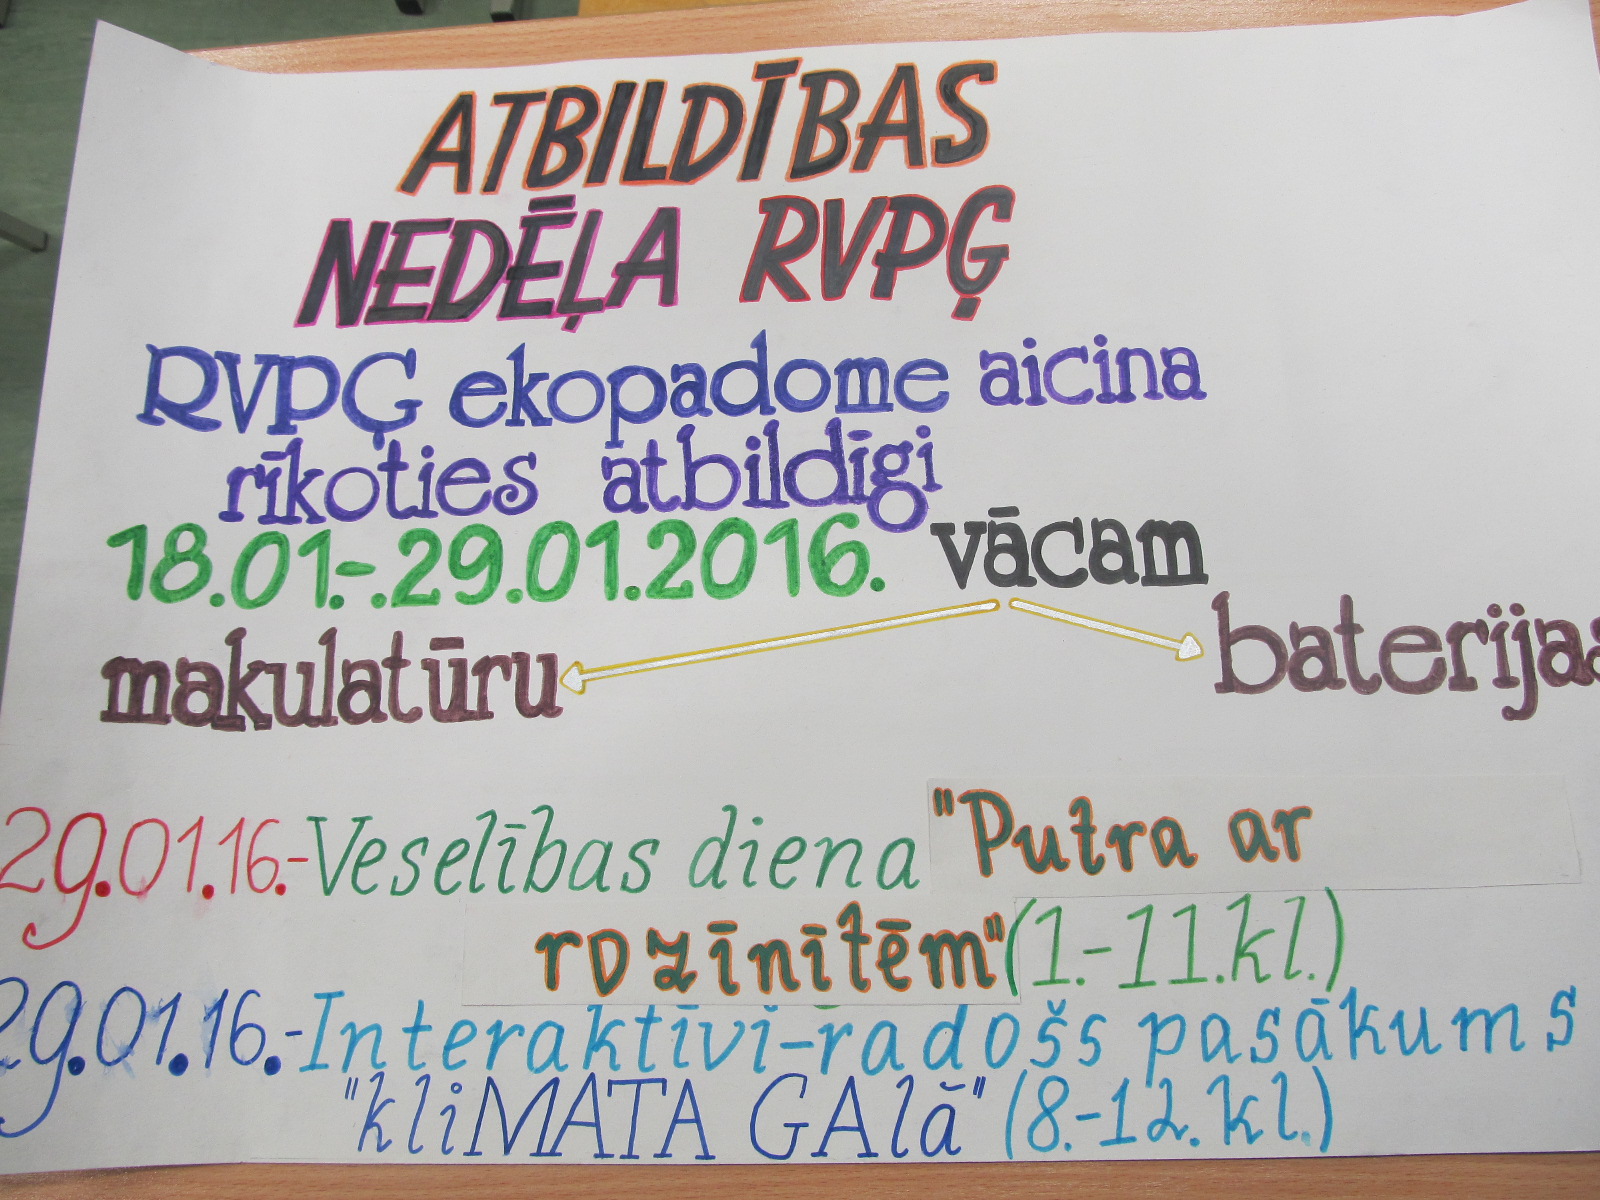 ATBILDĪBAS
NEDĒĻA RVPĢ
RVPĢ ekopadome aicina
rīkoties atbildīgi
18.01.-.29.01.2016. vācam
makulatūru baterijas
29.01.16.-Veselības diena "Putra ar
rozīnītēm"(1.-11.kl.)
29.01.16.-Interaktīvi-radošs pasākums
"kliMATA GAlā" (8.-12.kl.)